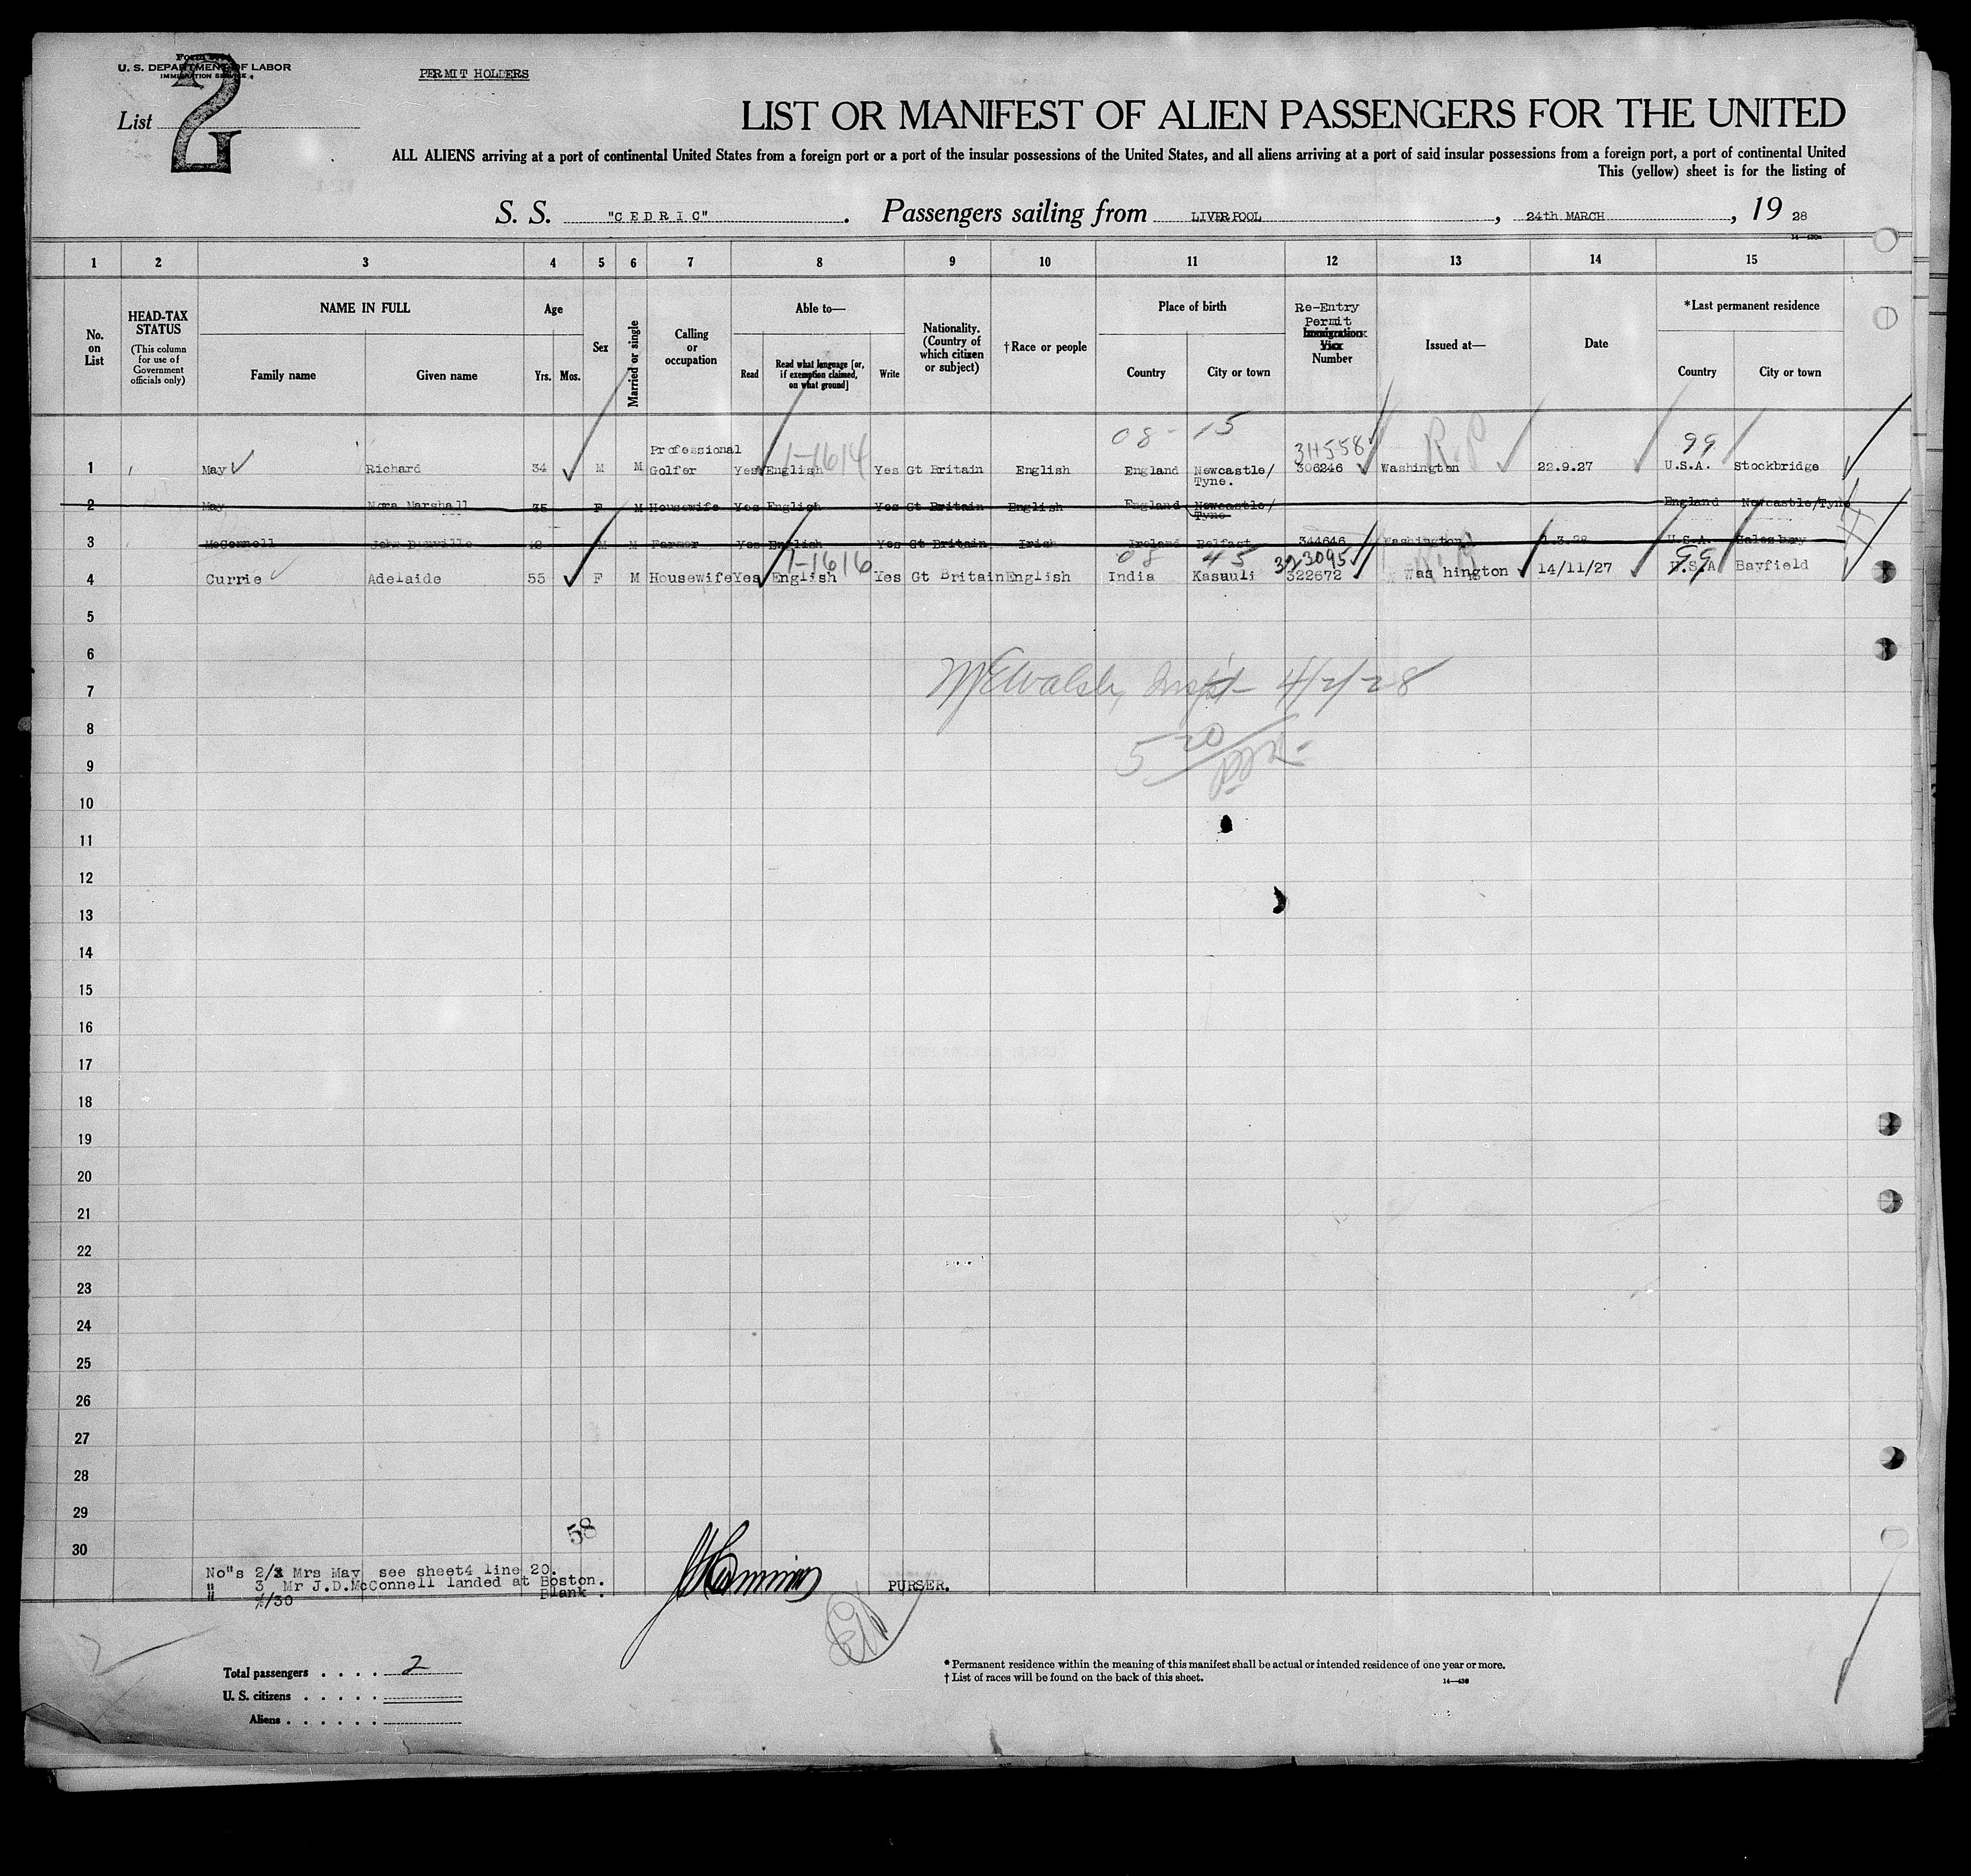 U. S. DEPARTMENT OF LABOR
IMMIGRATION SERVICE
PERMIT HOLDERS
List 2
LIST OR MANIFEST OF ALIEN PASSENGERS FOR THE UNITED
ALL ALIENS arriving at a port of continental United States from a foreign port or a port of the insular possessions of the United States, and all aliens arriving at a port of said insular possessions from a foreign port, a port of continental United
This (yellow) sheet is for the listing of
S. S. "CEDRIC". Passengers sailing from LIVERPOOL, 24th MARCH, 19 28
1 2 3 4 5 6 7 8 9 10 11 12 13 14 15
No. on List
HEAD-TAX STATUS
(This column for use of Government officials only)
NAME IN FULL
Family name Given name
Age
Yrs. Mos.
Sex
Married or single
Calling or occupation
Able to—
Read Read what language [or, if exemption claimed, on what ground] Write
Nationality. (Country of which citizen or subject)
†Race or people
Place of birth
Country City or town
Re-Entry Permit
Immigration Visa
Number
Issued at—
Date
*Last permanent residence
Country City or town
08 - 15
311558 R.P 99
1-1614
Professional
1 May Richard 34 M M Golfer Yes English Yes Gt Britain English England Newcastle/ 306246 Washington 22.9.27 U.S.A. Stockbridge
Tyne.
2 May Nora Marshall 35 F M Housewife Yes English Yes Gt Britain English England Newcastle/ England Newcastle/Tyne
Tyne
3 McConnell John M M Farmer Yes English Yes Gt Britain Irish Ireland Belfast 344646 Washington 1.3.28 U.S.A. Salesbury
1-1616 08 45 323095 99
4 Currie Adelaide 55 F M Housewife Yes English Yes Gt Britain English India Kasauli 322672 Was hington 14/11/27 U.S.A Bayfield
5
6
7
Walsh, Insp't 4/2/28
8
5 20
9
10
11
12
13
14
15
16
17
18
19
20
21
22
23
24
25
26
27
28
29
58
30
No"s 2/ Mrs May see sheet4 line 20.
" 3 Mr J.D.McConnell landed at Boston.
" /30 Blank .
PURSER.
Total passengers . . . . 2
U. S. citizens . . . . .
Aliens . . . . . .
* Permanent residence within the meaning of this manifest shall be actual or intended residence of one year or more.
† List of races will be found on the back of this sheet.
14—430